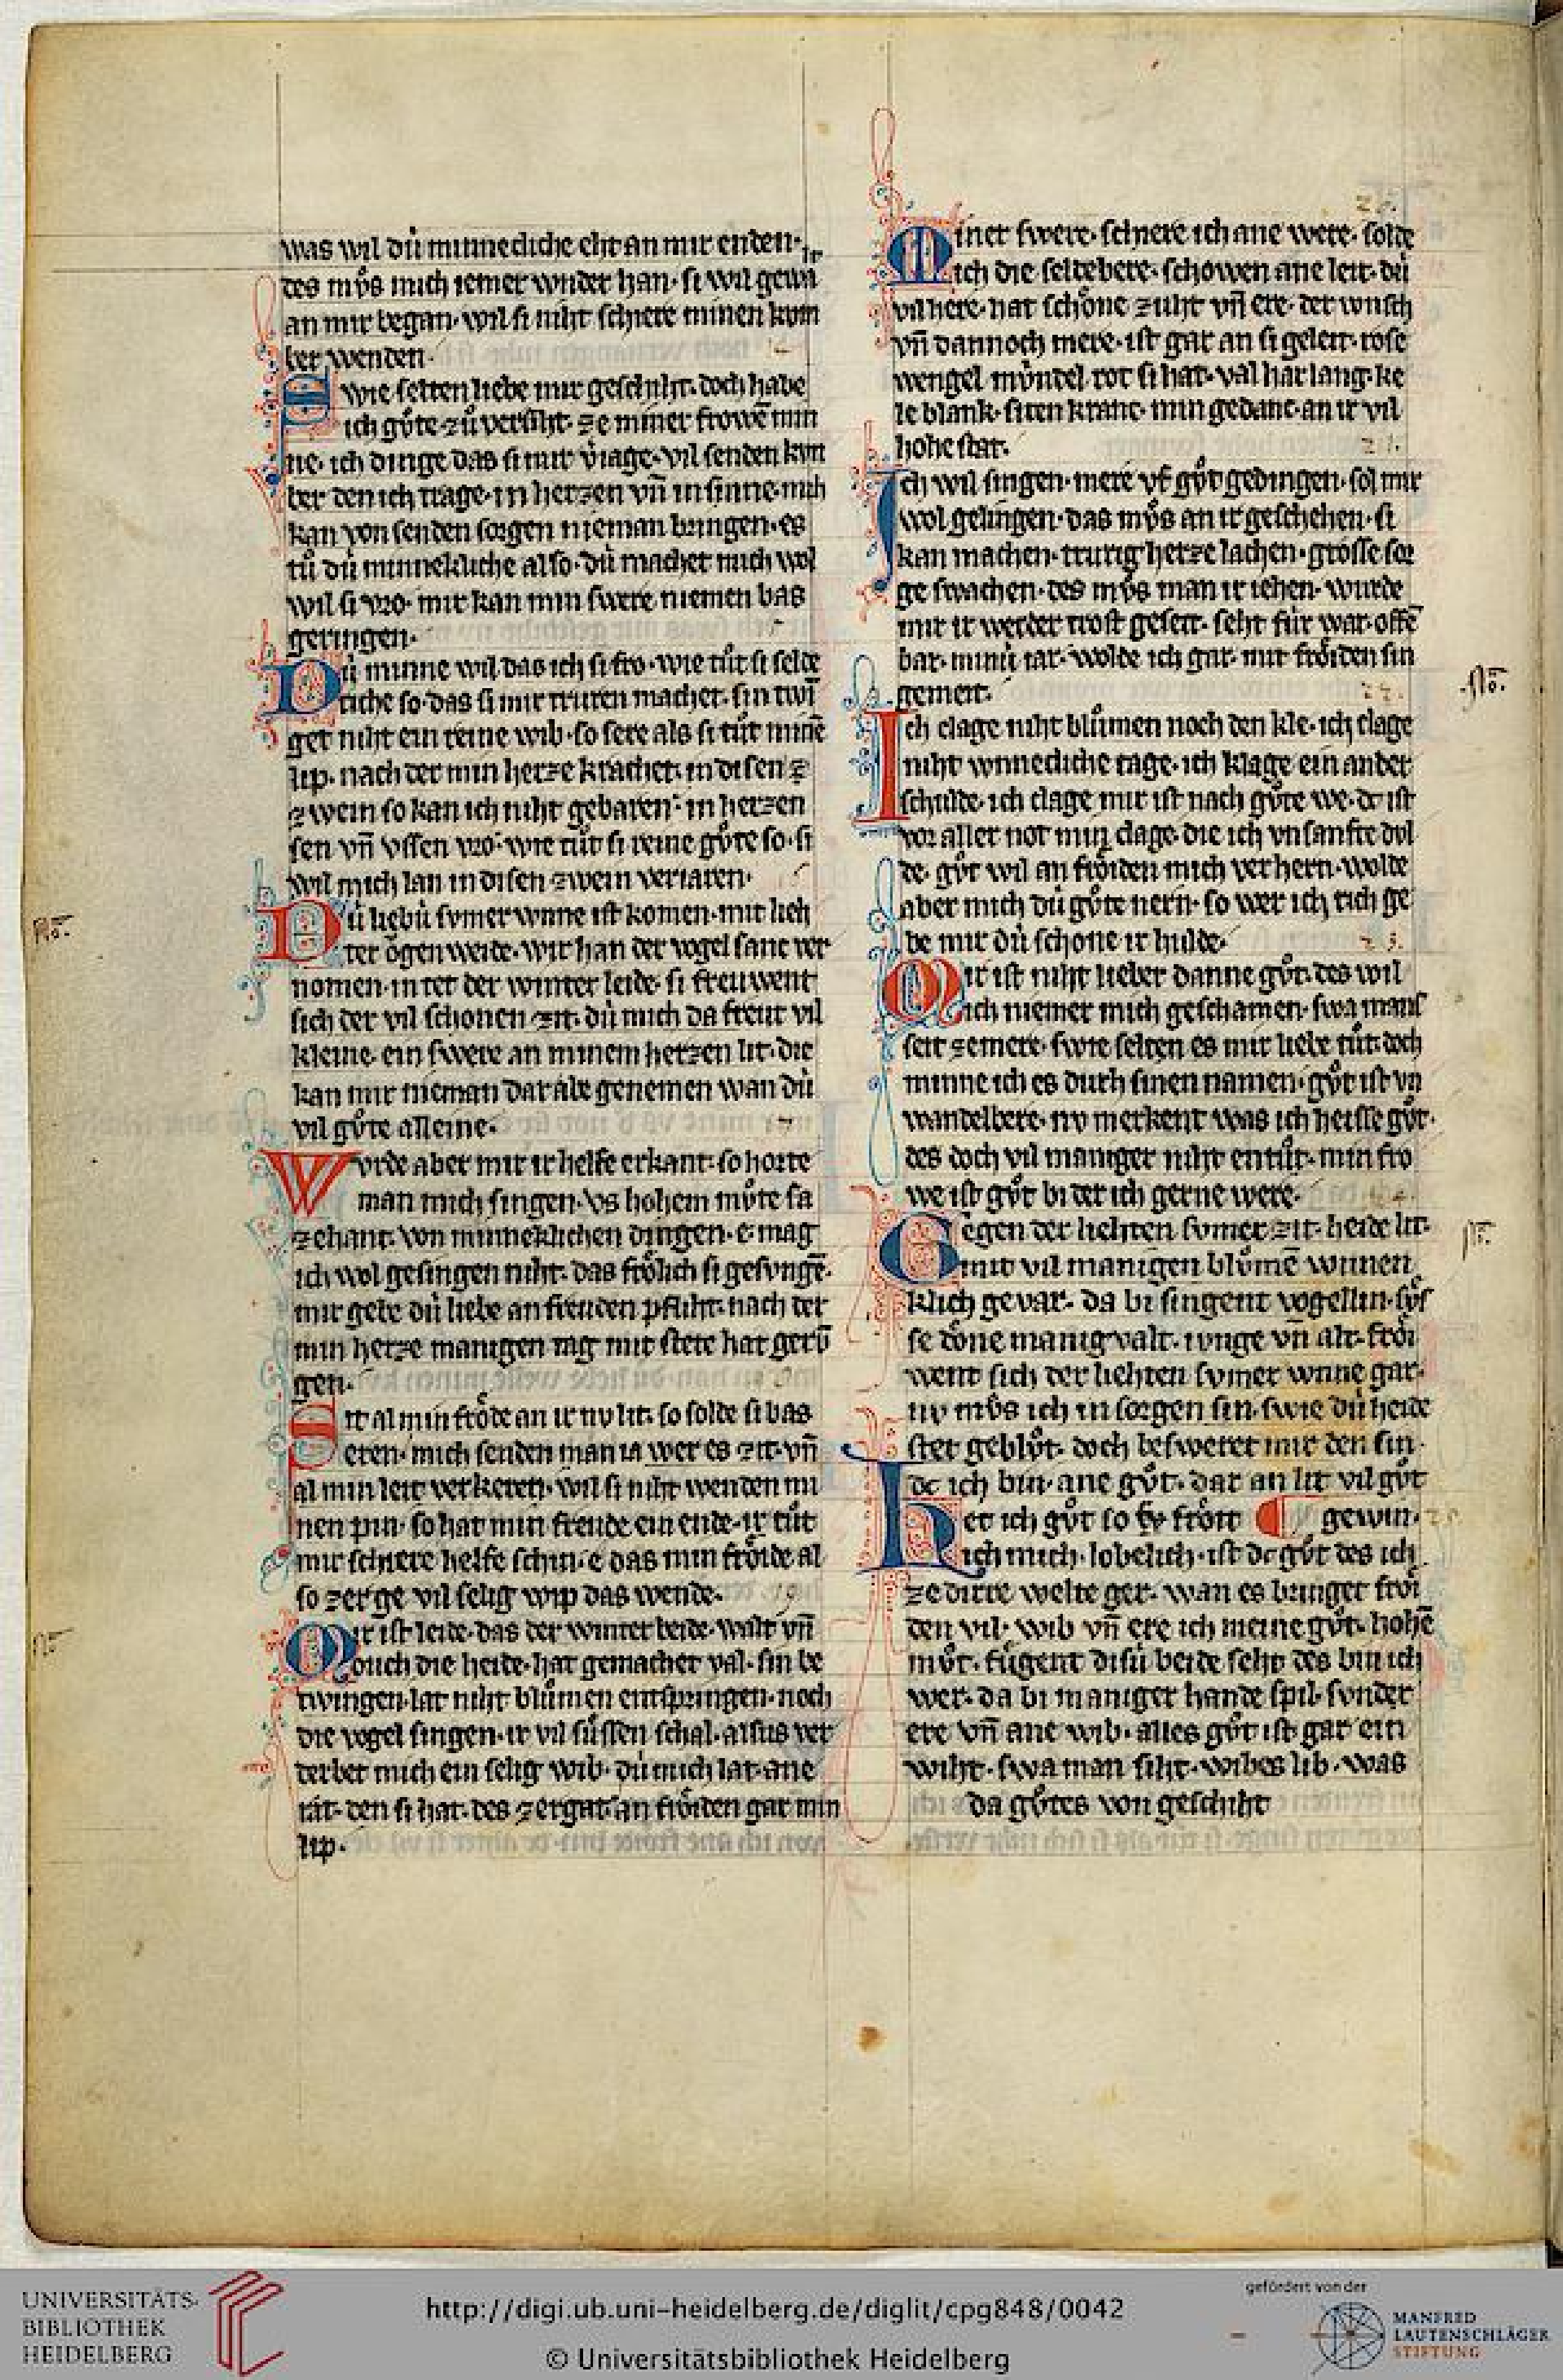 was wil dü minnecliche eht an mir enden· ir
des mvͦs mich iemer wnder han· si wil gewi
an mir began· wil si niht schiere minen kvm
ber wenden·
Swie selten liebe mir geschiht· doch habe
ich gvͦte zuͦ versiht· ze miner frowē min
ne· ich dinge das si mir v͛iage· vil senden kvm
ber den ich trage· in herzen vn̄ in sinne· mich
kan von senden sorgen nieman bringen· es
tuͦ dü minnekliche also· dü machet mich wol
wil si vro· mir kan min swere niemen bas
geringen·
Dü minne wil das ich si fro· wie tuͦt si selde
riche so· das si mir truren machet· sin twi
get niht ein reine wib· so sere als si tuͦt minē
lip· nach der min herze krachet· in disen
zwein so kan ich niht gebaren· in herzen
sen vn̄ vssen vro· wie tuͦt si reine gvͦte so· si
wil mich lan in disen zwein veriaren·
Dü liebü svmer wnne ist komen· mit lieh
ter oͮgen weide· wir han der vogel sanc ver
nomen· in tet der winter leide· si freuwent
sich der vil schonen zit· dü mich da freut vil
kleine· ein swere an minem herzen lit· die
kan mir nieman dar abe genemen wan dü
vil gvͦte alleine·
Wurde aber mir ir helfe erkant· so horte
man mich singen· vs hohem mvͦte sa
zehant· von minneklichen dingen· e· mag
ich wol gesingen niht· das froͤlich si gesvngē·
mir gebe dü liebe an freuden pfliht· nach der
min herze manigen tag mit stete hat gerv̄
gen·
Sit al min froͤde an ir nv lit· so solde si bas
eren· mich senden man ia wer es zit· vn̄
al min leit verkeren· wil si niht wenden mi
nen pin· so hat min freude ein ende· ir tuͦt
mir schiere helfe schin· e das min froͤide al
so zerge vil selig wip das wende·
Mir ist leide· das der winter beide· walt vn̄
ouch die heide· hat gemachet val· sin be
twingen· lat niht bluͦmen entspringen· noch
die vogel singen· ir vil suͤssen schal· alsus ver
derbet mich ein selig wib· dü mich lat· ane
rat· den si hat· des zergat· an froͤiden gar min
lip·
20.
Miner swere· schiere ich ane were· solde
ich die seldebere· schowen ane leit· dü
vil here· hat schoͤne zuht vn̄ ere· der wnsch
vn̄ dannoch mere· ist gar an si geleit· rose
wengel mvͤndel rot si hat· val har lang· ke
le blank· siten kranc· min gedanc· an ir vil
hohe stat·
21.
Ich wil singen· mere vf gvͦt gedingen· sol mir
wol gelingen· das mvͦs an ir geschehen· si
kan machen· trurig herze lachen· grosse sor
ge swachen· des mvͦs man ir iehen· wurde
mir ir werder trost geseit· seht für war· offē
bar· minü iar· wolde ich gar· mit froͤiden sin
gemeit·
22.
Ich clage niht bluͦmen noch den kle· ich clage
niht wnnecliche tage· ich klage ein ander
schulde· ich clage mir ist nach gvͦte we· dc ist
vor aller not min clage· die ich vnsanfte dvl
de· gvͦt wil an froͤiden mich verhern· wolde
aber mich dü gvͦte nern· so wer ich rich ge
be mir dü schone ir hulde·
23.
Mir ist niht lieber danne gvͦt· des wil
ich niemer mich geschamen· swa mans
seit ze mere· swie selten es mir liebe tuͦt· doch
minne ich es durh sinen namen· gvͦt ist vn
wandelbere· nv merkent was ich heisse gvͦt·
des doch vil maniger niht entuͦt· min fro
we ist gvͦt bi der ich gerne were·
Gegen der liehten svmer zit· heide lit·
mit vil manigen blvͦmē wnnen
klich gevar· da bi singent vogellin· svͤs
se doͤne manigvalt· iunge vn̄ alt· froͤi
went sich der liehten svmer wnne gar·
nv mvͦs ich in sorgen sin· swie dü heide
stet geblvͤt· doch besweret mir den sin·
dc ich bin· ane gvͦt· dar an lit vil gvͦt
gewin·
Het ich gvͦt so froͤit
ich mich· lobelich· ist dc gvͦt des ich
ze dirre welte ger· wan es bringet froͤi
den vil· wib vn̄ ere ich meine gvͦt· hohē
mvͦt· fuͤgent disü beide seht des bin ich
wer· da bi maniger hande spil· svnder
ere vn̄ ane wib· alles gvͦt ist gar ein
wiht· swa man siht· wibes lib· was
da gvͦtes von geschiht
UNIVERSITÄTS-
BIBLIOTHEK
HEIDELBERG
http://digi.ub.uni-heidelberg.de/diglit/cpg848/0042
© Universitätsbibliothek Heidelberg
gefördert von der
MANFRED
LAUTENSCHLÄGER
STIFTUNG